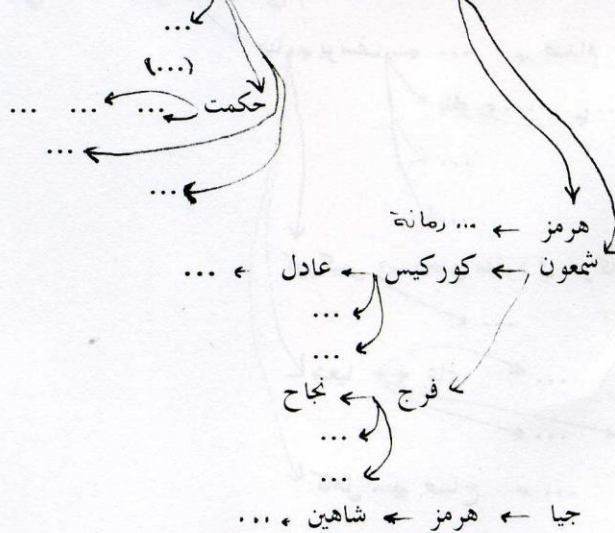 ...
(...)
حكمت ... ... ...
...
...
هرمز ← ... رمانة
شمعون ← كوركيس ← عادل ← ...
...
...
فرج ← نجاح
...
...
جيا ← هرمز ← شاهين ← ...